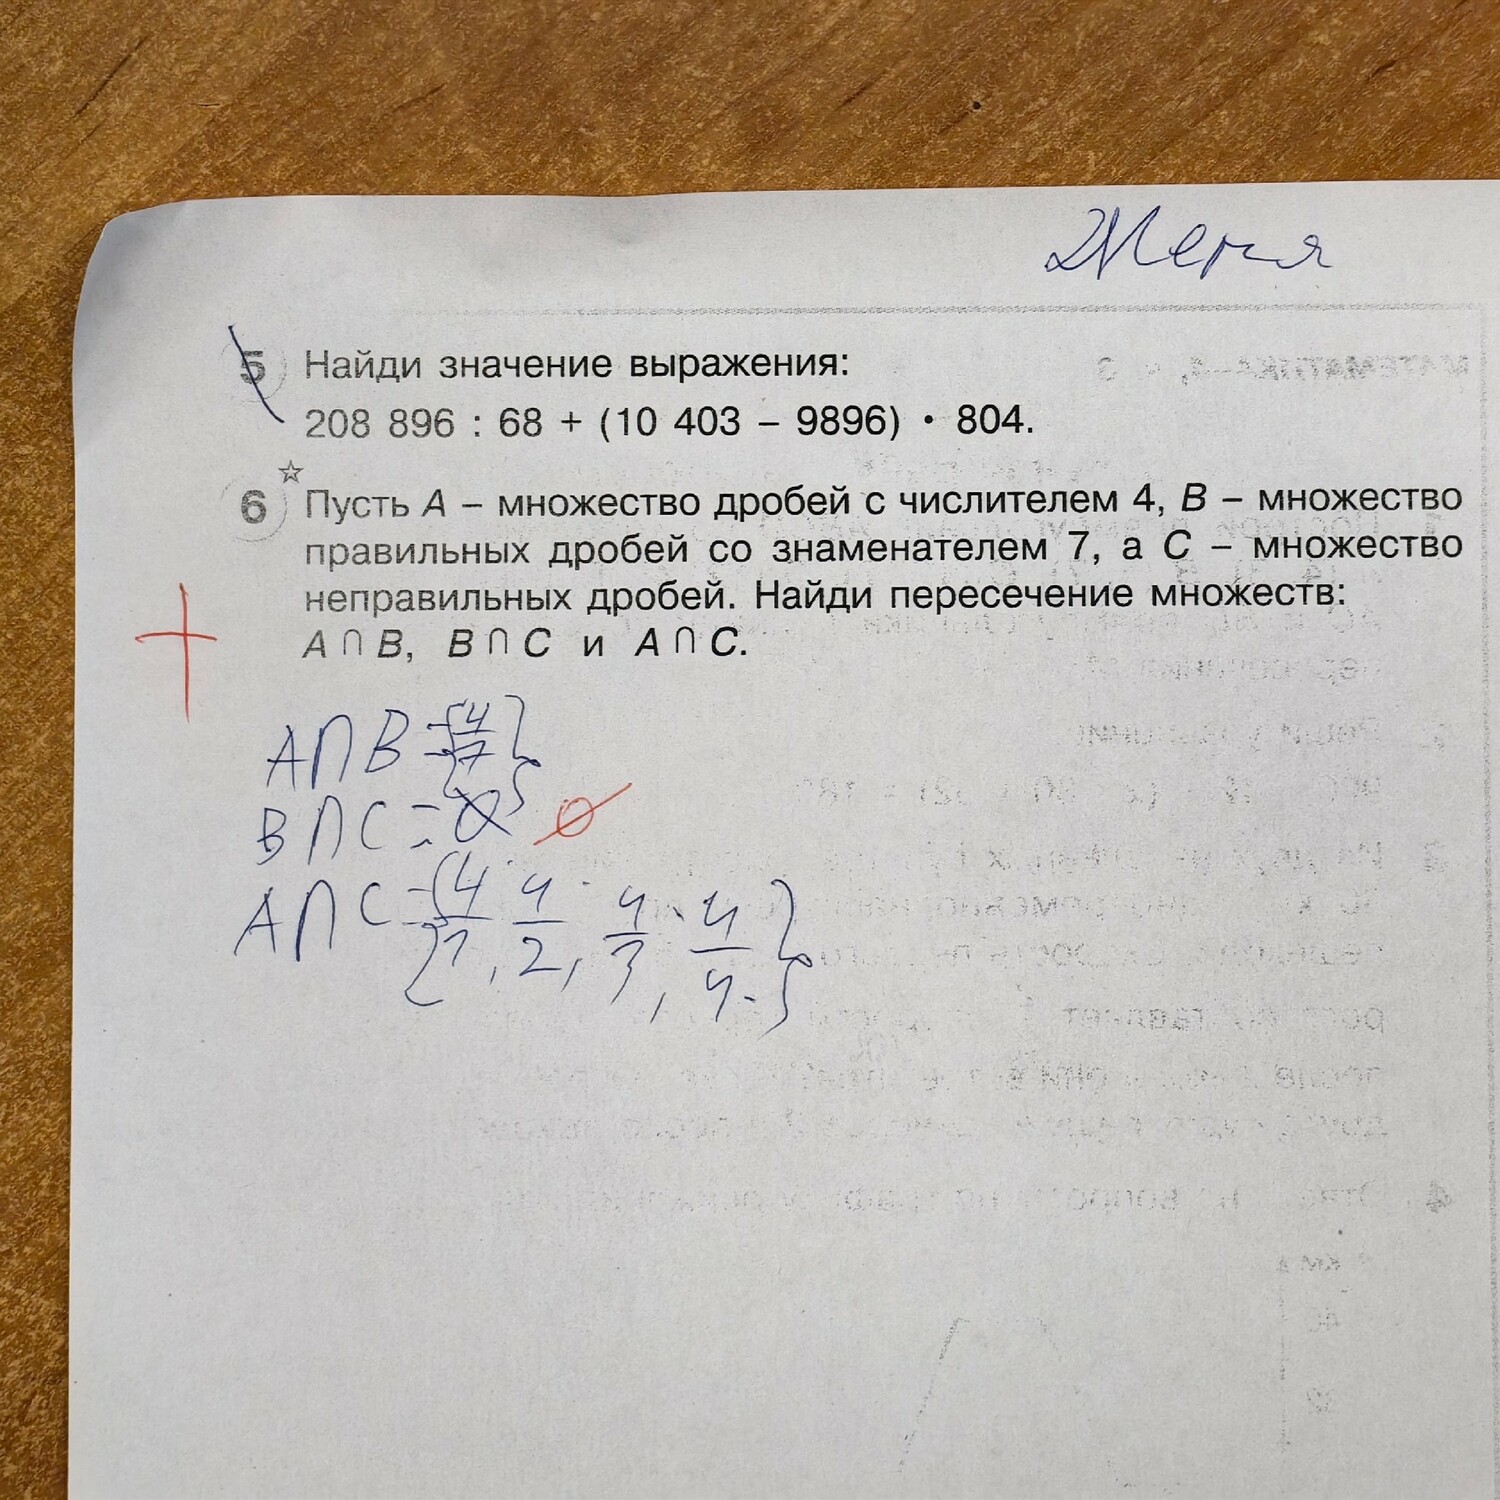 Женя
5 Найди значение выражения:
208 896 : 68 + (10 403 – 9896) • 804.
6☆ Пусть A – множество дробей с числителем 4, B – множество
правильных дробей со знаменателем 7, а C – множество
неправильных дробей. Найди пересечение множеств:
A ∩ B, B ∩ C и A ∩ C.
+
A∩B = {4/7}
B∩C = ∅ ∅
A∩C = {4/1, 4/2, 4/3, 4/4}